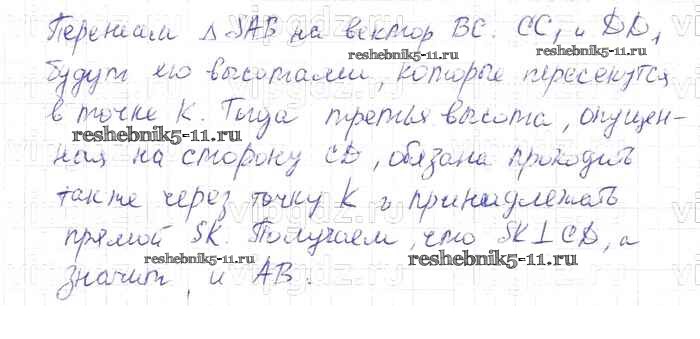 Перенесем △ SAB на вектор BC. CC₁ и DD₁
reshebnik5-11.ru
reshebnik5-11.ru
будут его высотами, которые пересекутся
в точке K. Тогда третья высота, опущен-
reshebnik5-11.ru
ная на сторону CD, обязана проходить
также через точку K и принадлежать
прямой SK. Получаем, что SK⊥CD, а
reshebnik5-11.ru
reshebnik5-11.ru
значит, и AB.